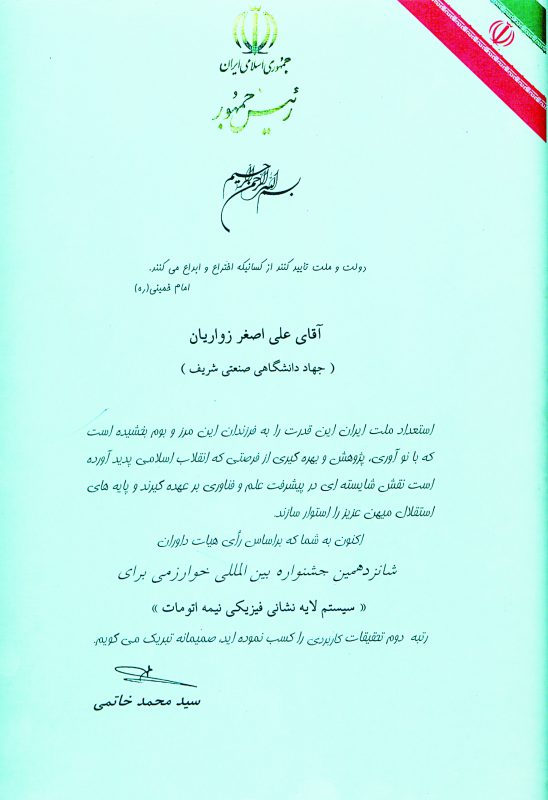 جمهوری اسلامی ایران
رئیس جمهور
بسم الله الرحمن الرحیم
دولت و ملت تایید کنند از کسانیکه اختراع و ابداع می کنند.
امام خمینی(ره)
آقای علی اصغر زواریان
( جهاد دانشگاهی صنعتی شریف )
استعداد ملت ایران این قدرت را به فرزندان این مرز و بوم بخشیده است
که با نو آوری، پژوهش و بهره گیری از فرصتی که انقلاب اسلامی پدید آورده
است نقش شایسته ای در پیشرفت علم و فناوری بر عهده گیرند و پایه های
استقلال میهن عزیز را استوار سازند.
اکنون به شما که براساس رأی هیات داوران
شانزدهمین جشنواره بین المللی خوارزمی برای
« سیستم لایه نشانی فیزیکی نیمه اتومات »
رتبه دوم تحقیقات کاربردی را کسب نموده اید، صمیمانه تبریک می گویم.
سید محمد خاتمی